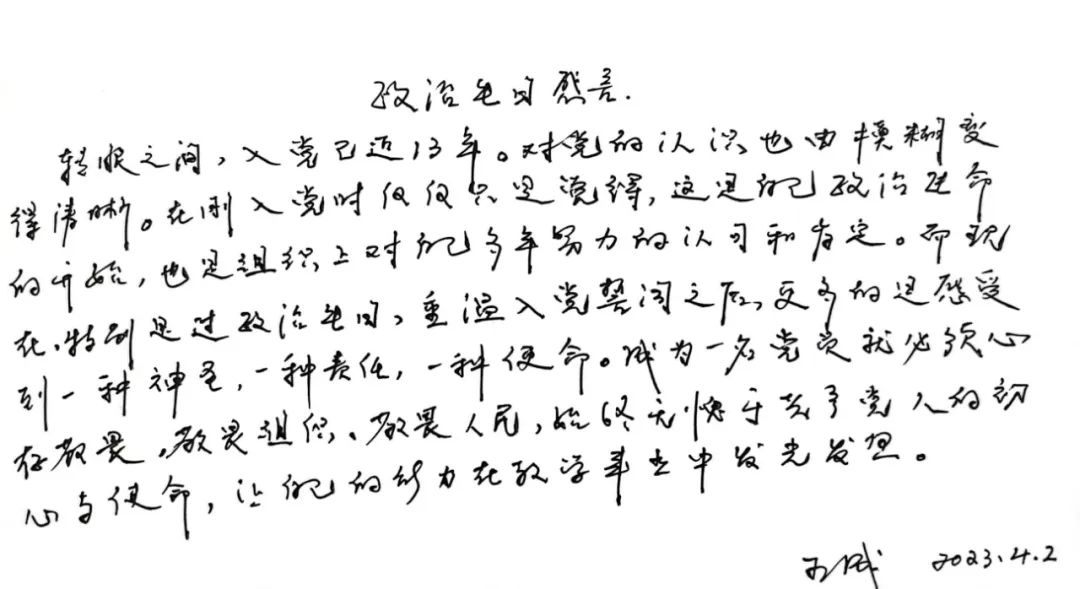 政治生日感言.
转眼之间，入党已近13年。对党的认识也由模糊变
得清晰。在刚入党时仅仅只是觉得，这是自己政治生命
的开始，也是组织上对自己多年努力的认可和肯定。而现
在，特别是过政治生日，重温入党誓词之后，更多的是感受
到一种神圣，一种责任，一种使命。成为一名党员就必须心
存敬畏，敬畏组织、敬畏人民，始终无愧于共产党人的初
心与使命，让自己的能力在教学事业中发光发热。
2023.4.2